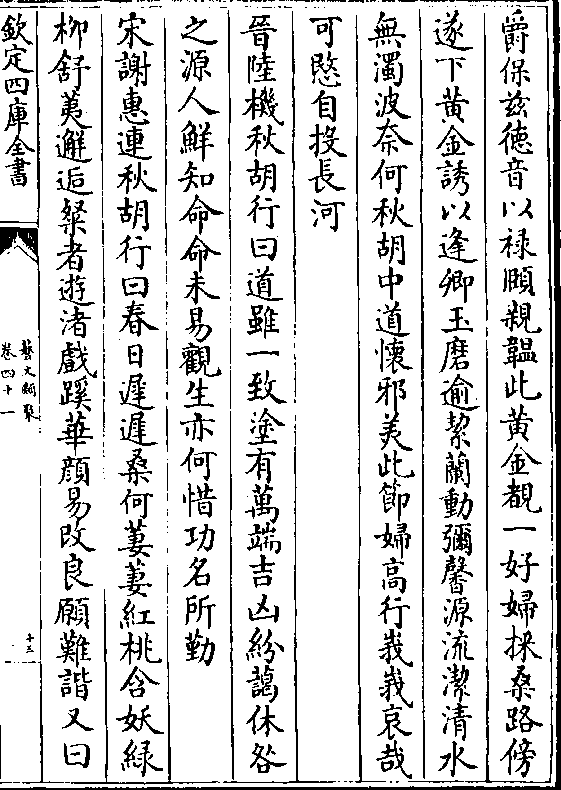 爵保兹德音以禄頤親韞此黄金覩一好婦採桑路傍
遂下黄金誘以逢卿玉磨逾絜蘭動彌馨源流潔清水
無濁波奈何秋胡中道懷邪美此節婦高行峩峩哀哉
可愍自投長河
晉陸機秋胡行曰道雖一致塗有萬端吉凶紛藹休咎
之源人鮮知命命未易觀生亦何惜功名所勤
宋謝惠連秋胡行曰春日遲遲桑何萋萋紅桃含妖緑
柳舒荑邂逅粲者遊渚戲蹊華顔易改良願難諧又曰
欽定四庫全書
藝文類聚
卷四十一
十三